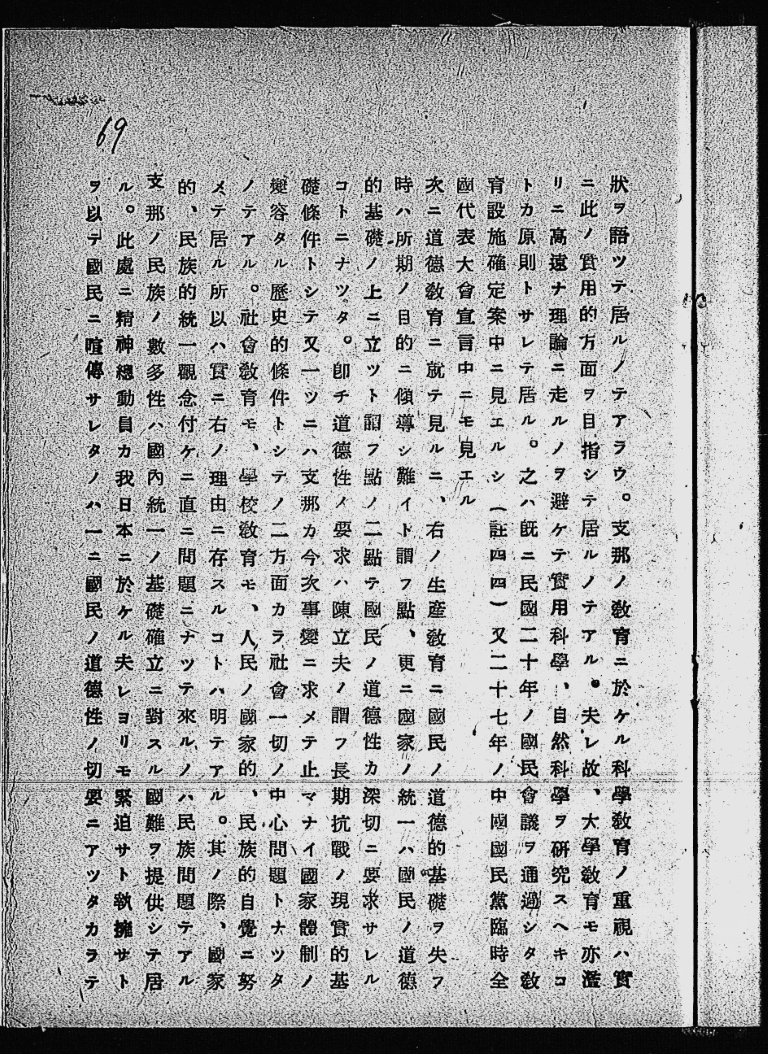 69
狀ヲ語ツテ居ルノテアラウ。支那ノ敎育ニ於ケル科學敎育ノ重視ハ實
ニ此ノ實用的方面ヲ目指シテ居ルノテアル。夫レ故、大學敎育モ亦濫
リニ高遠ナ理論ニ走ルノヲ避ケテ實用科學、自然科學ヲ硏究スヘキコ
トカ原則トサレテ居ル。之ハ旣ニ民國二十年ノ國民會議ヲ通過シタ敎
育設施確定案中ニ見エルシ(註四四)又二十七年ノ中國國民黨臨時全
國代表大會宣言中ニモ見エル
次ニ道德敎育ニ就テ見ルニ、右ノ生產敎育ニ國民ノ道德的基礎ヲ失フ
時ハ所期ノ目的ニ傾導シ難イト謂フ點、更ニ國家ノ統一ハ國民ノ道德
的基礎ノ上ニ立ツト謂フ點ノ二點テ國民ノ道德性カ深切ニ要求サレル
コトニナツタ。卽チ道德性ノ要求ハ陳立夫ノ謂フ長期抗戰ノ現實的基
礎條件トシテ又一ツニハ支那カ今次事變ニ求メテ止マナイ國家體制ノ
變容タル歷史的條件トシテノ二方面カラ社會一切ノ中心問題トナツタ
ノテアル。社會敎育モ、學校敎育モ、人民ノ國家的、民族的自覺ニ努
メテ居ル所以ハ實ニ右ノ理由ニ存スルコトハ明テアル。其ノ際、國家
的、民族的統一觀念付ケニ直ニ問題ニナツテ來ルノハ民族問題テアル
支那ノ民族ノ數多性ハ國內統一ノ基礎確立ニ對スル國難ヲ提供シテ居
ル。此處ニ精神總動員カ我日本ニ於ケル夫レヨリモ緊迫サト執擁サト
ヲ以テ國民ニ喧傳サレタノハ一ニ國民ノ道德性ノ切要ニアツタカラテ